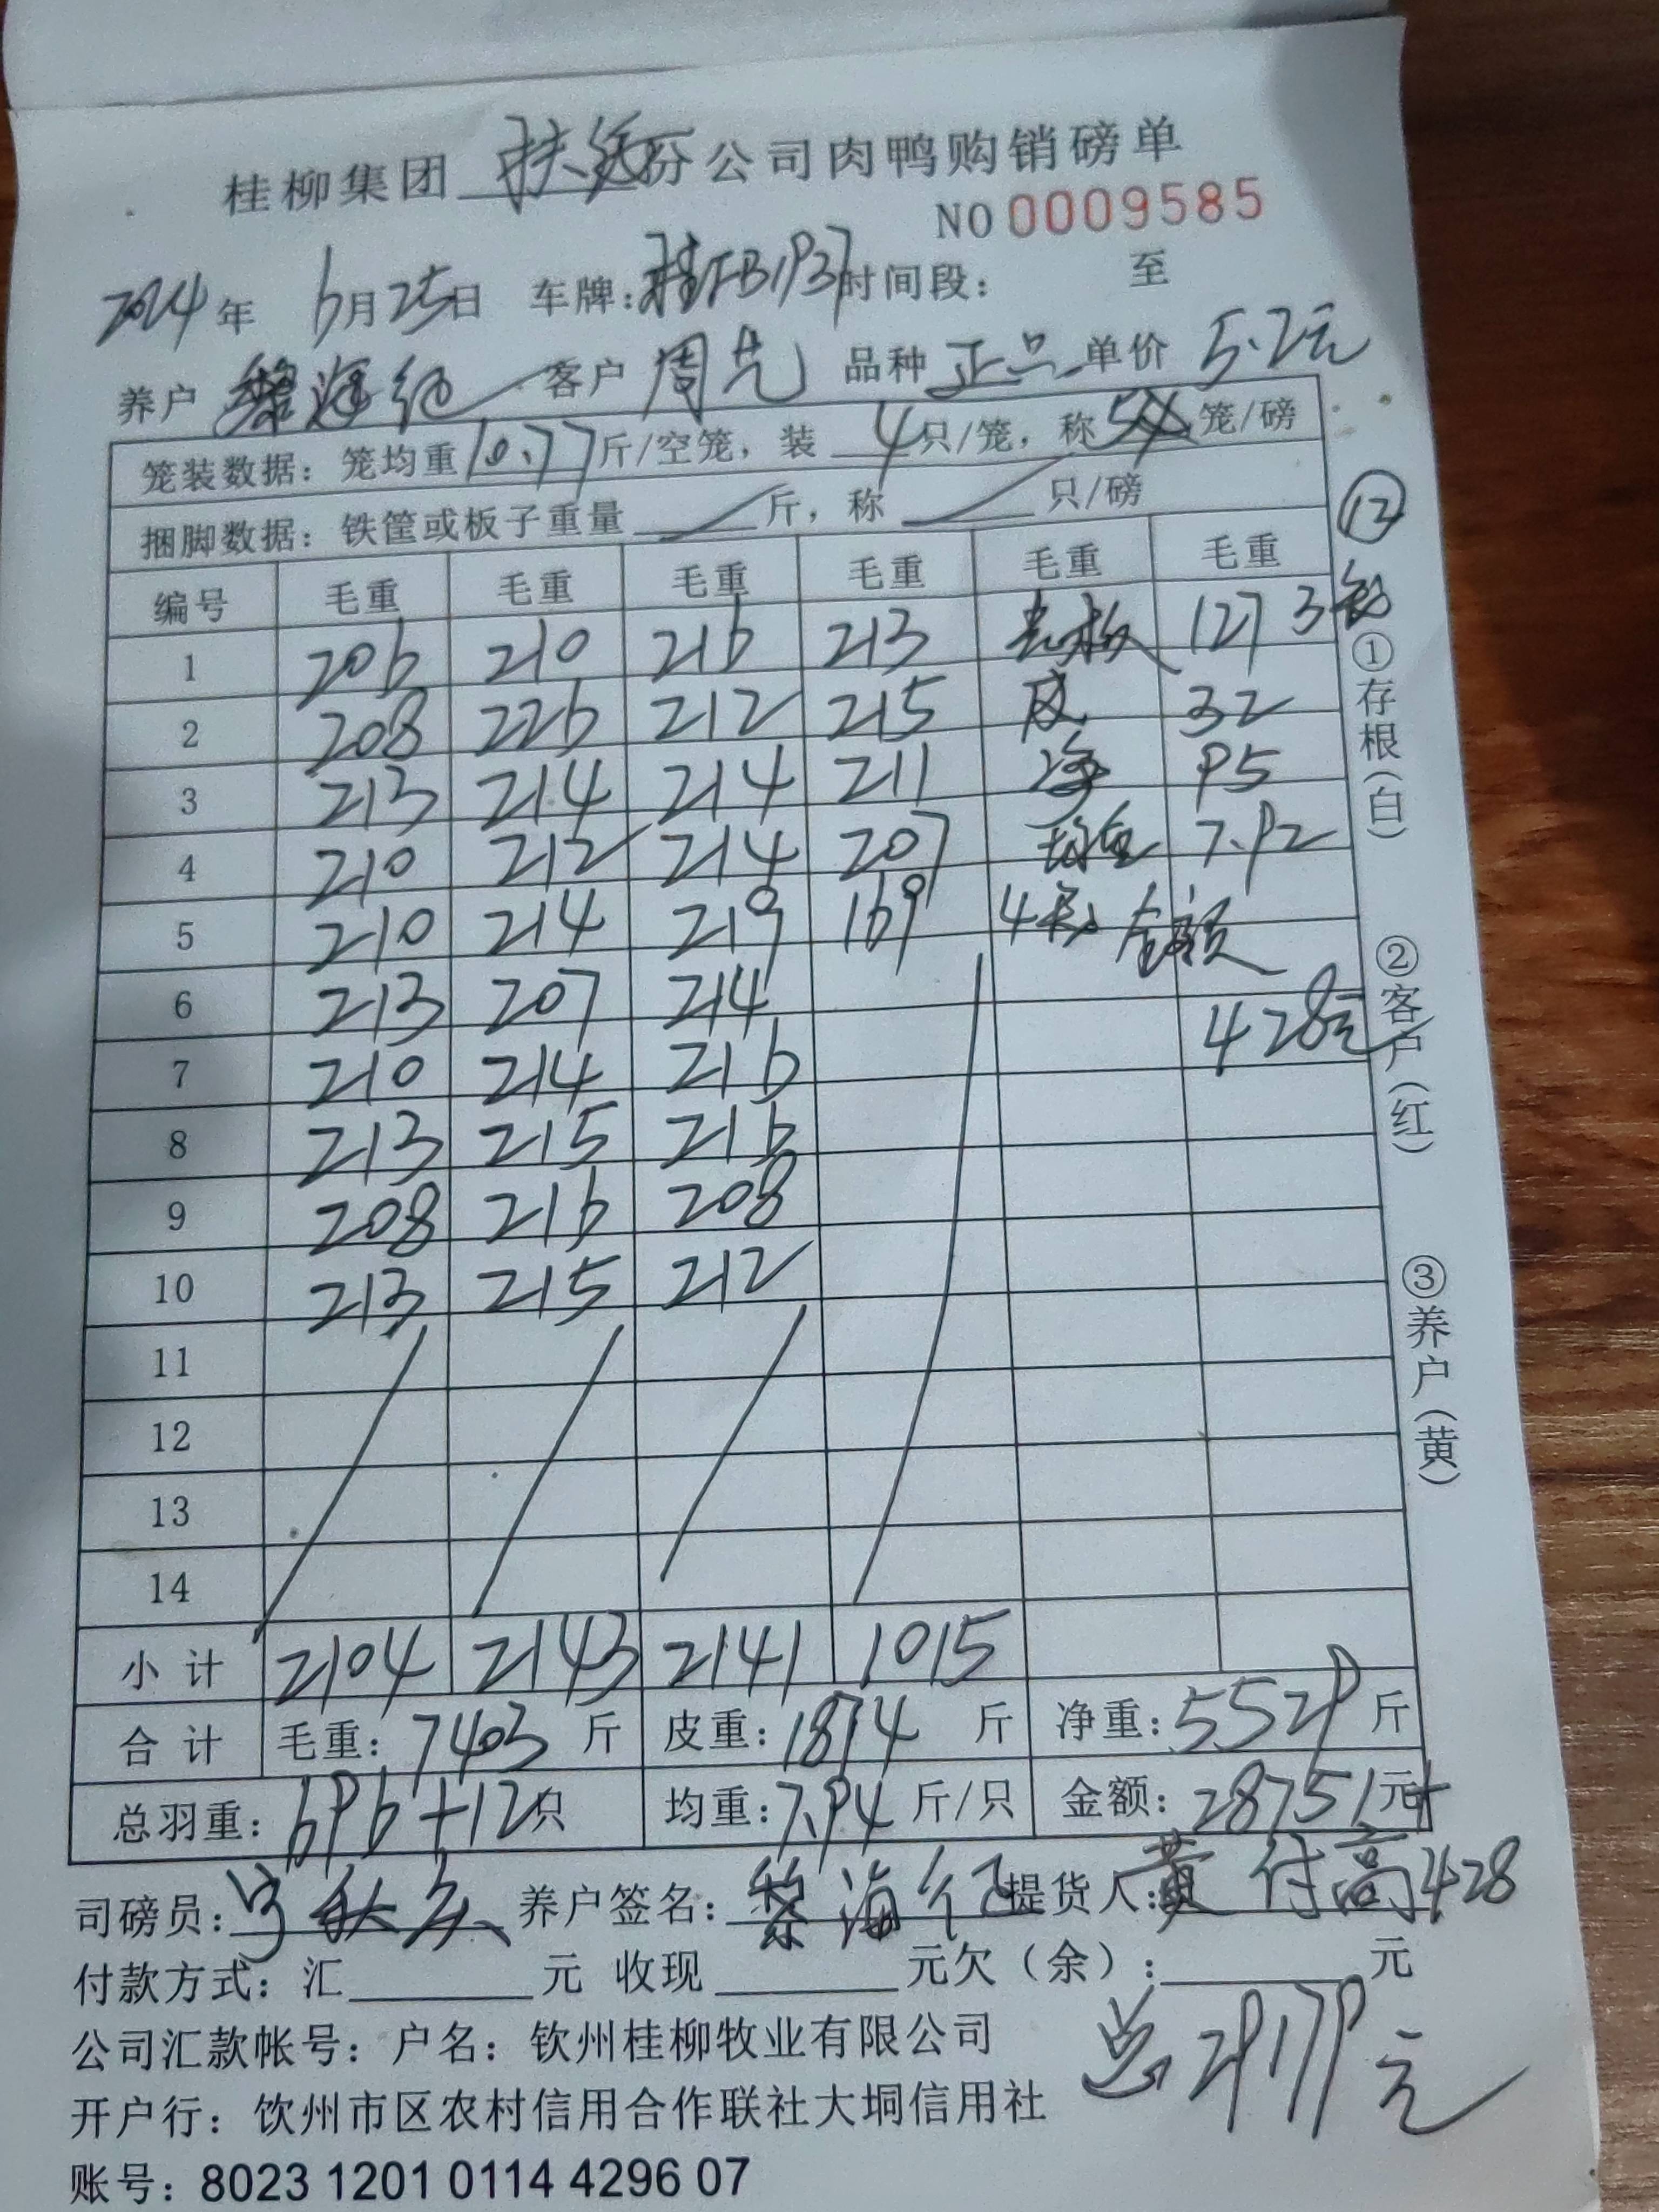 桂柳集团 扶绥 分公司肉鸭购销磅单
NO 0009585
2024年 6月25日 车牌: 时间段: 至
养户 客户 周先 品种 正品 单价 5.2元
笼装数据：笼均重10.77斤/空笼，装 4只/笼，称 笼/磅
捆脚数据：铁筐或板子重量 斤，称 只/磅
⑫
编号 毛重 毛重 毛重 毛重 毛重 毛重
1 206 210 216 213 127 3
2 208 226 212 215 皮 32
3 213 214 214 211 净 95
4 210 212 214 207 均重 7.92
5 210 214 219 169 金额
6 213 207 214 428元
7 210 214 216
8 213 215 216
9 208 216 208
10 213 215 212
11
12
13
14
小计 2104 2143 2141 1015
合计 毛重：7403斤 皮重：1874斤 净重：5529斤
总羽重：696+12只 均重：7.94斤/只 金额：28751元+
428
司磅员： 养户签名：黎海 提货人：黄付高
付款方式：汇 元 收现 元欠（余）： 元
总29179元
公司汇款帐号：户名：钦州桂柳牧业有限公司
开户行：饮州市区农村信用合作联社大垌信用社
账号：8023 1201 0114 4296 07
①存根（白）
②客户（红）
③养户（黄）